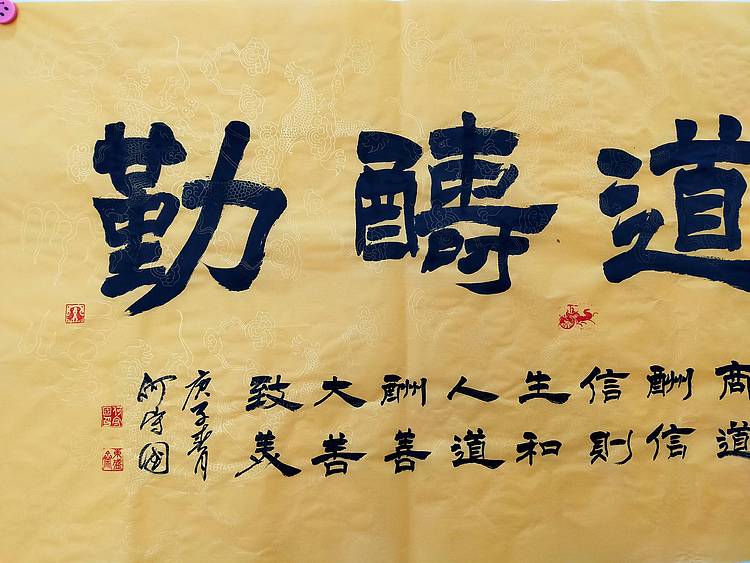 道醻勤
商道
酬信
信則
生和
人道
酬善
大善
致美
庚子春月
何守国